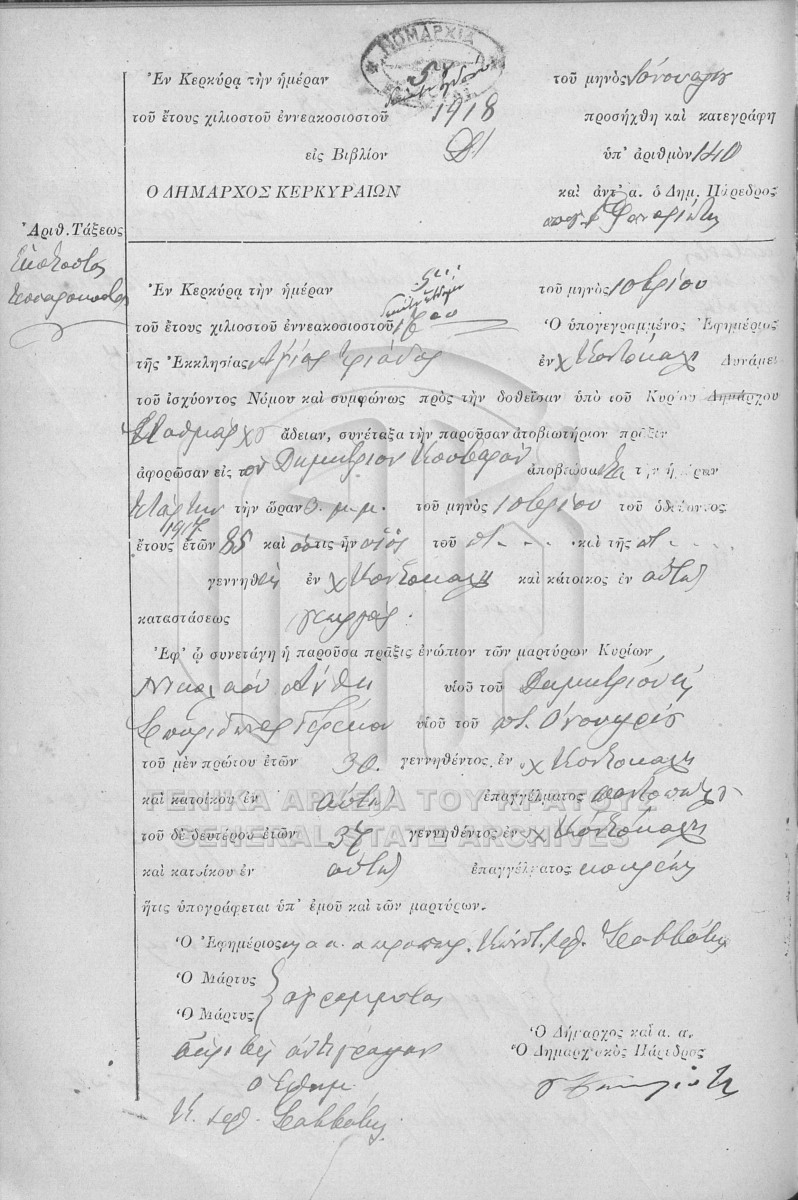 ΝΟΜΑΡΧΙΑ
Ἐν Κερκύρᾳ τὴν ἡμέραν 5ην τοῦ μηνὸς Ἰανουαρίου
τοῦ ἔτους χιλιοστοῦ ἐννεακοσιοστοῦ 1918 προσήχθη καὶ κατεγράφη
εἰς Βιβλίον ὑπ' ἀριθμὸν 140
Ο ΔΗΜΑΡΧΟΣ ΚΕΡΚΥΡΑΙΩΝ καὶ ἀντ' α. ὁ Δημ. Πάρεδρος
Ἀριθ. Τάξεως
Ἑκατοστὸν
τεσσαρακοστὸν
Ἐν Κερκύρᾳ τὴν ἡμέραν 5ην τοῦ μηνὸς 10βρίου
τοῦ ἔτους χιλιοστοῦ ἐννεακοσιοστοῦ Ὁ ὑπογεγραμμένος Ἐφημέριος
τῆς Ἐκκλησίας Ἁγίας Τριάδος ἐν χ Κοντόκαλι Δυνάμει
τοῦ ἰσχύοντος Νόμου καὶ συμφώνως πρὸς τὴν δοθεῖσαν ὑπὸ τοῦ Κυρίου Δημάρχου
ἄδειαν, συνέταξα τὴν παροῦσαν ἀποβιωτήριον πρᾶξιν
ἀφορῶσαν εἰς τὸν Δημήτριον Κουβαρᾶν ἀποβιώσαντα τὴν ἡμέραν
τετάρτην τὴν ὥραν 3 μ.μ. τοῦ μηνὸς 10βρίου τοῦ ὁδεύοντος
1917
ἔτους ἐτῶν 85 καὶ ὅστις ἦν υἱὸς τοῦ π. - - - καὶ τῆς π. - - -
γεννηθεὶς ἐν χ Κοντόκαλι καὶ κάτοικος ἐν αὐτῷ
καταστάσεως γεωργός.
Ἐφ' ᾧ συνετάγη ἡ παροῦσα πρᾶξις ἐνώπιον τῶν μαρτύρων Κυρίων
Νικολάου υἱοῦ τοῦ Δημητρίου ἢ
υἱοῦ τοῦ π. Ὀνουφρίου
τοῦ μὲν πρώτου ἐτῶν 30. γεννηθέντος ἐν χ Κοντόκαλι
καὶ κατοίκου ἐν αὐτῷ ἐπαγγέλματος παντοπώλου
τοῦ δὲ δευτέρου ἐτῶν 37 γεννηθέντος ἐν χ Κοντόκαλι
καὶ κατοίκου ἐν αὐτῷ ἐπαγγέλματος κουρέως
ἥτις ὑπογράφεται ὑπ' ἐμοῦ καὶ τῶν μαρτύρων.
Ὁ Ἐφημέριος Κωνστ. ἱερ. Σαββάτης
Ὁ Μάρτυς
Ὁ Μάρτυς
ἀγράμματος
Ὁ Δήμαρχος καὶ α. α.
Ὁ Δημαρχιακὸς Πάρεδρος
ἀντίγραφον
ὁ Ἐφημ.
Κ. ἱερ. Σαββάτης
ΓΕΝΙΚΑ ΑΡΧΕΙΑ ΤΟΥ ΚΡΑΤΟΥΣ
GENERAL STATE ARCHIVES